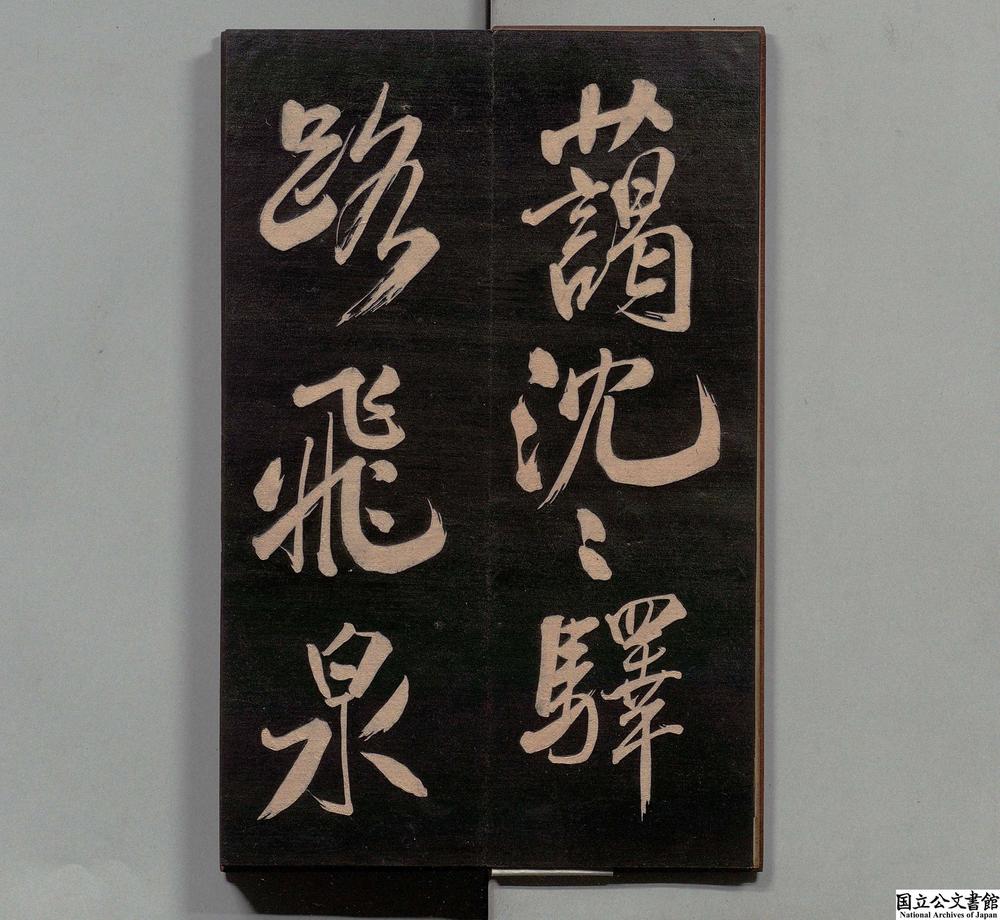 藹沈〻驛
路飛泉
国立公文書館
National Archives of Japan